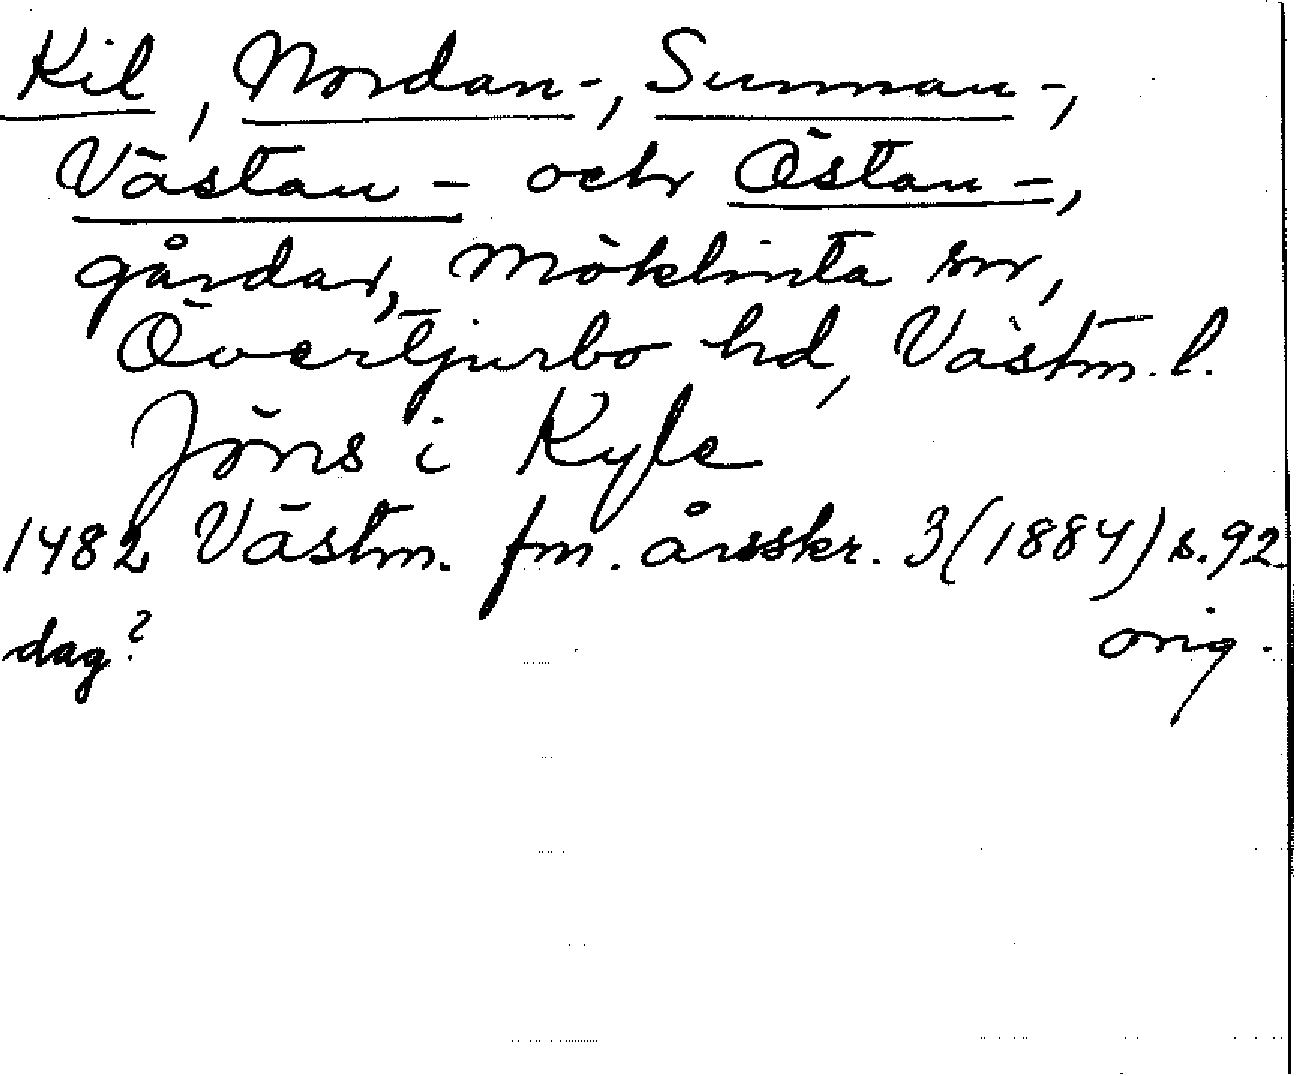 Kil, Nordan-, Sunnan-,
Västan- och Östan-,
gårdar, Möklinta sn,
Övertjurbo hd, Västm. l.
Jöns i Kyle
1482 Västm. fm. årsskr. 3 (1884) s. 92.
dag? orig.